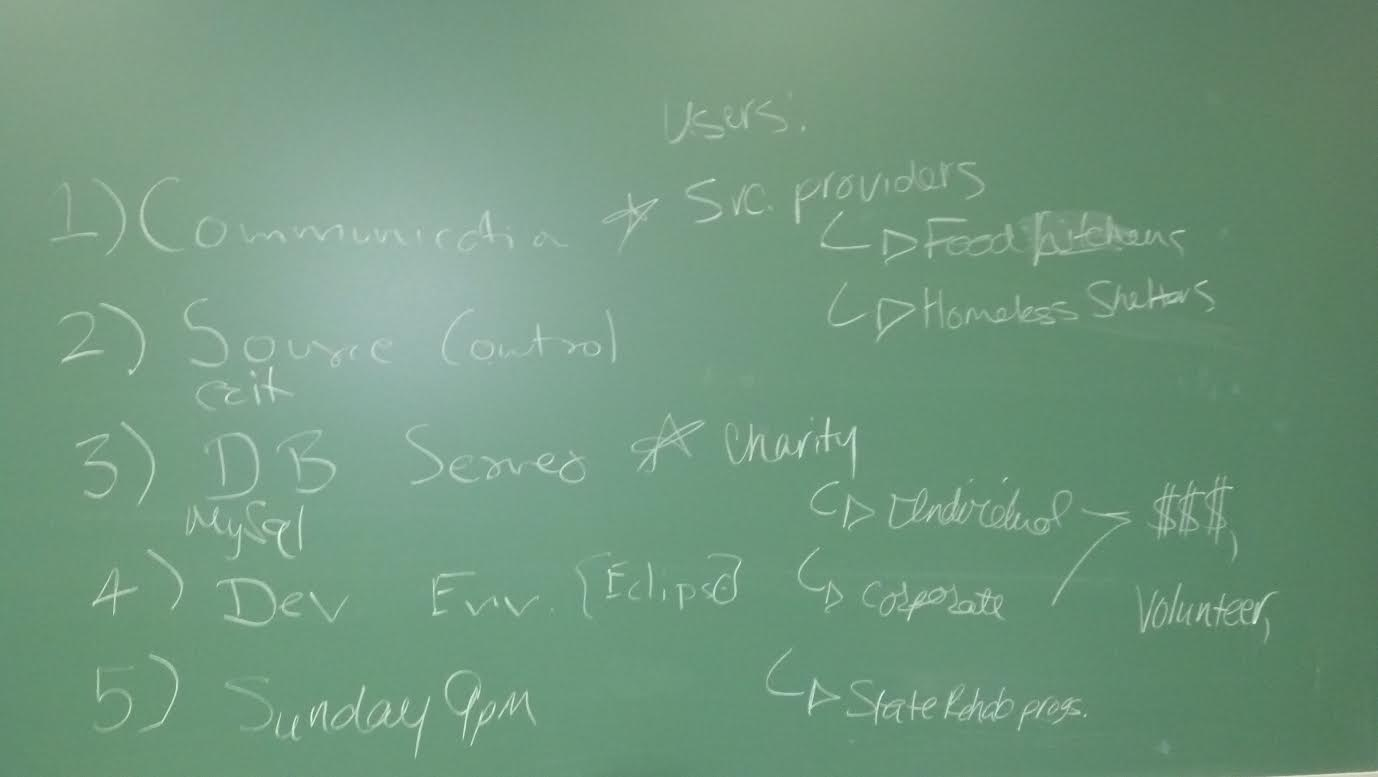 1) Communication
2) Source Control
Git
3) DB Server
MySql
4) Dev Env. [Eclipse]
5) Sunday 9pm
Users:
☆ Svc. providers
↳ Food kitchens
↳ Homeless Shelters
☆ Charity
↳ Individual → $$$,
↳ Corporate
Volunteer,
↳ State Rehab progs.